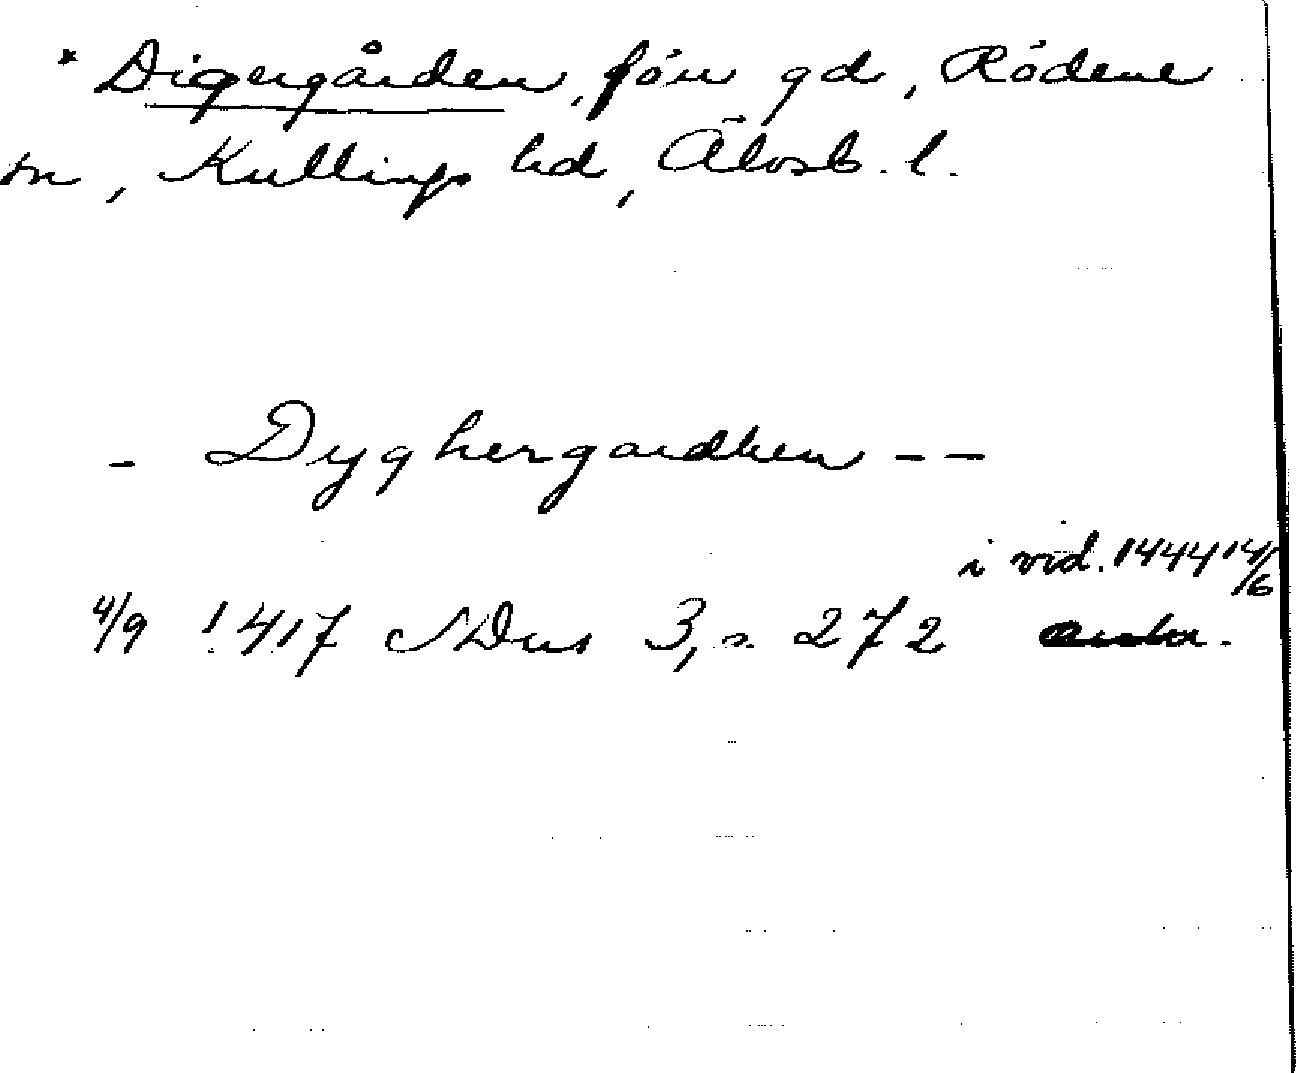 * Digergården, förr gd, Rödene
sn, Kullings hd, Älvsb. l.
- Dyghergardhen - -
i vid. 1444 14/6
4/9 1417 SDns 3, s. 272